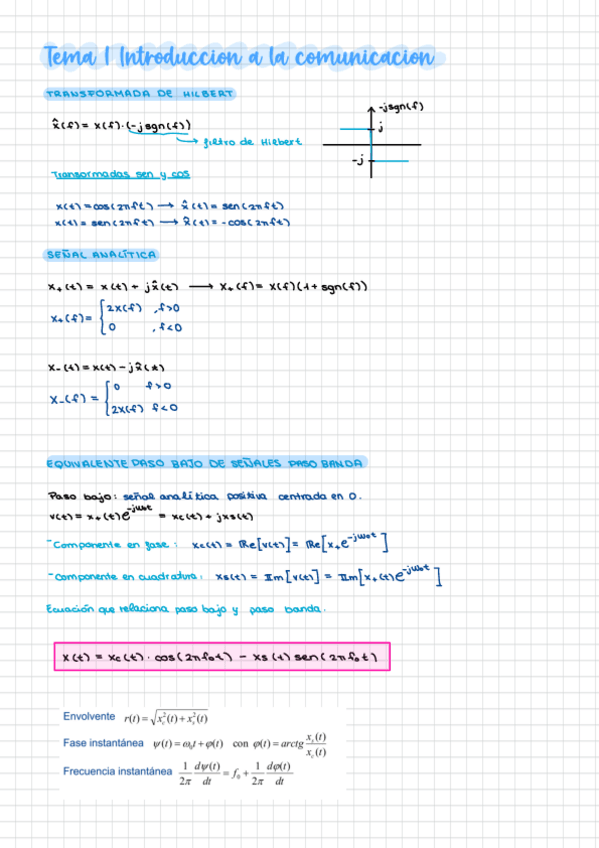 Tema 1 Introduccion a la comunicacion
TRANSFORMADA DE HILBERT
x̂(f) = x(f)·(-jsgn(f))
filtro de Hilbert
-jsgn(f)
j
-j
Transormadas sen y cos
x(t) = cos(2πft) → x̂(t) = sen(2πft)
x(t) = sen(2πft) → x̂(t) = -cos(2πft)
SEÑAL ANALÍTICA
x₊(t) = x(t) + jx̂(t) → X₊(f) = X(f)(1 + sgn(f))
X₊(f) = { 2X(f) , f>0
0 , f<0
X₋(t) = x(t) - jx̂(t)
X₋(f) = { 0 f>0
2X(f) f<0
EQUIVALENTE PASO BAJO DE SEÑALES PASO BANDA
Paso bajo: señal analítica positiva centrada en 0.
v(t) = x₊(t)e^-jω₀t = xc(t) + jxs(t)
-Componente en fase: xc(t) = Re[v(t)] = Re[x₊e^-jω₀t]
-Componente en cuadratura: xs(t) = Im[v(t)] = Im[x₊(t)e^-jω₀t]
Ecuación que relaciona paso bajo y paso banda.
x(t) = xc(t)·cos(2πf₀t) - xs(t) sen(2πf₀t)
Envolvente r(t) = √(x_c²(t) + x_s²(t))
Fase instantánea ψ(t) = ω₀t + φ(t) con φ(t) = arctg x_s(t)/x_c(t)
Frecuencia instantánea 1/2π dψ(t)/dt = f₀ + 1/2π dφ(t)/dt